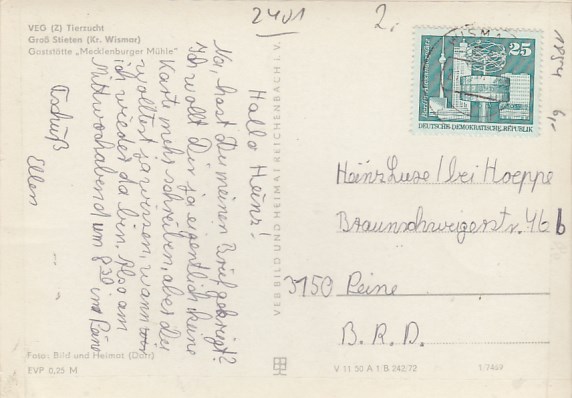 2401
2.
11854 6,-
VEG (Z) Tierzucht
Groß Stieten (Kr. Wismar)
Gaststätte „Mecklenburger Mühle"
Hallo Heinz!
Na, hast Du meinen Brief gekriegt?
Ich wollt Dir ja eigentlich keine
Karte mehr schreiben, aber Du
wolltest ja wissen, wann
ich wieder da bin. Also am
Mittwochabend um 8³⁰ in Peine
Tschüß
Ellen
VEB BILD UND HEIMAT REICHENBACH I. V.
WISMAR
25
DEUTSCHE DEMOKRATISCHE REPUBLIK
Heinz Luse / bei Hoeppe
Braunschweigerstr. 46 b
3150 Peine
B.R.D.
Foto: Bild und Heimat (Darr)
EVP 0,25 M
V 11 50 A 1 B 242/72